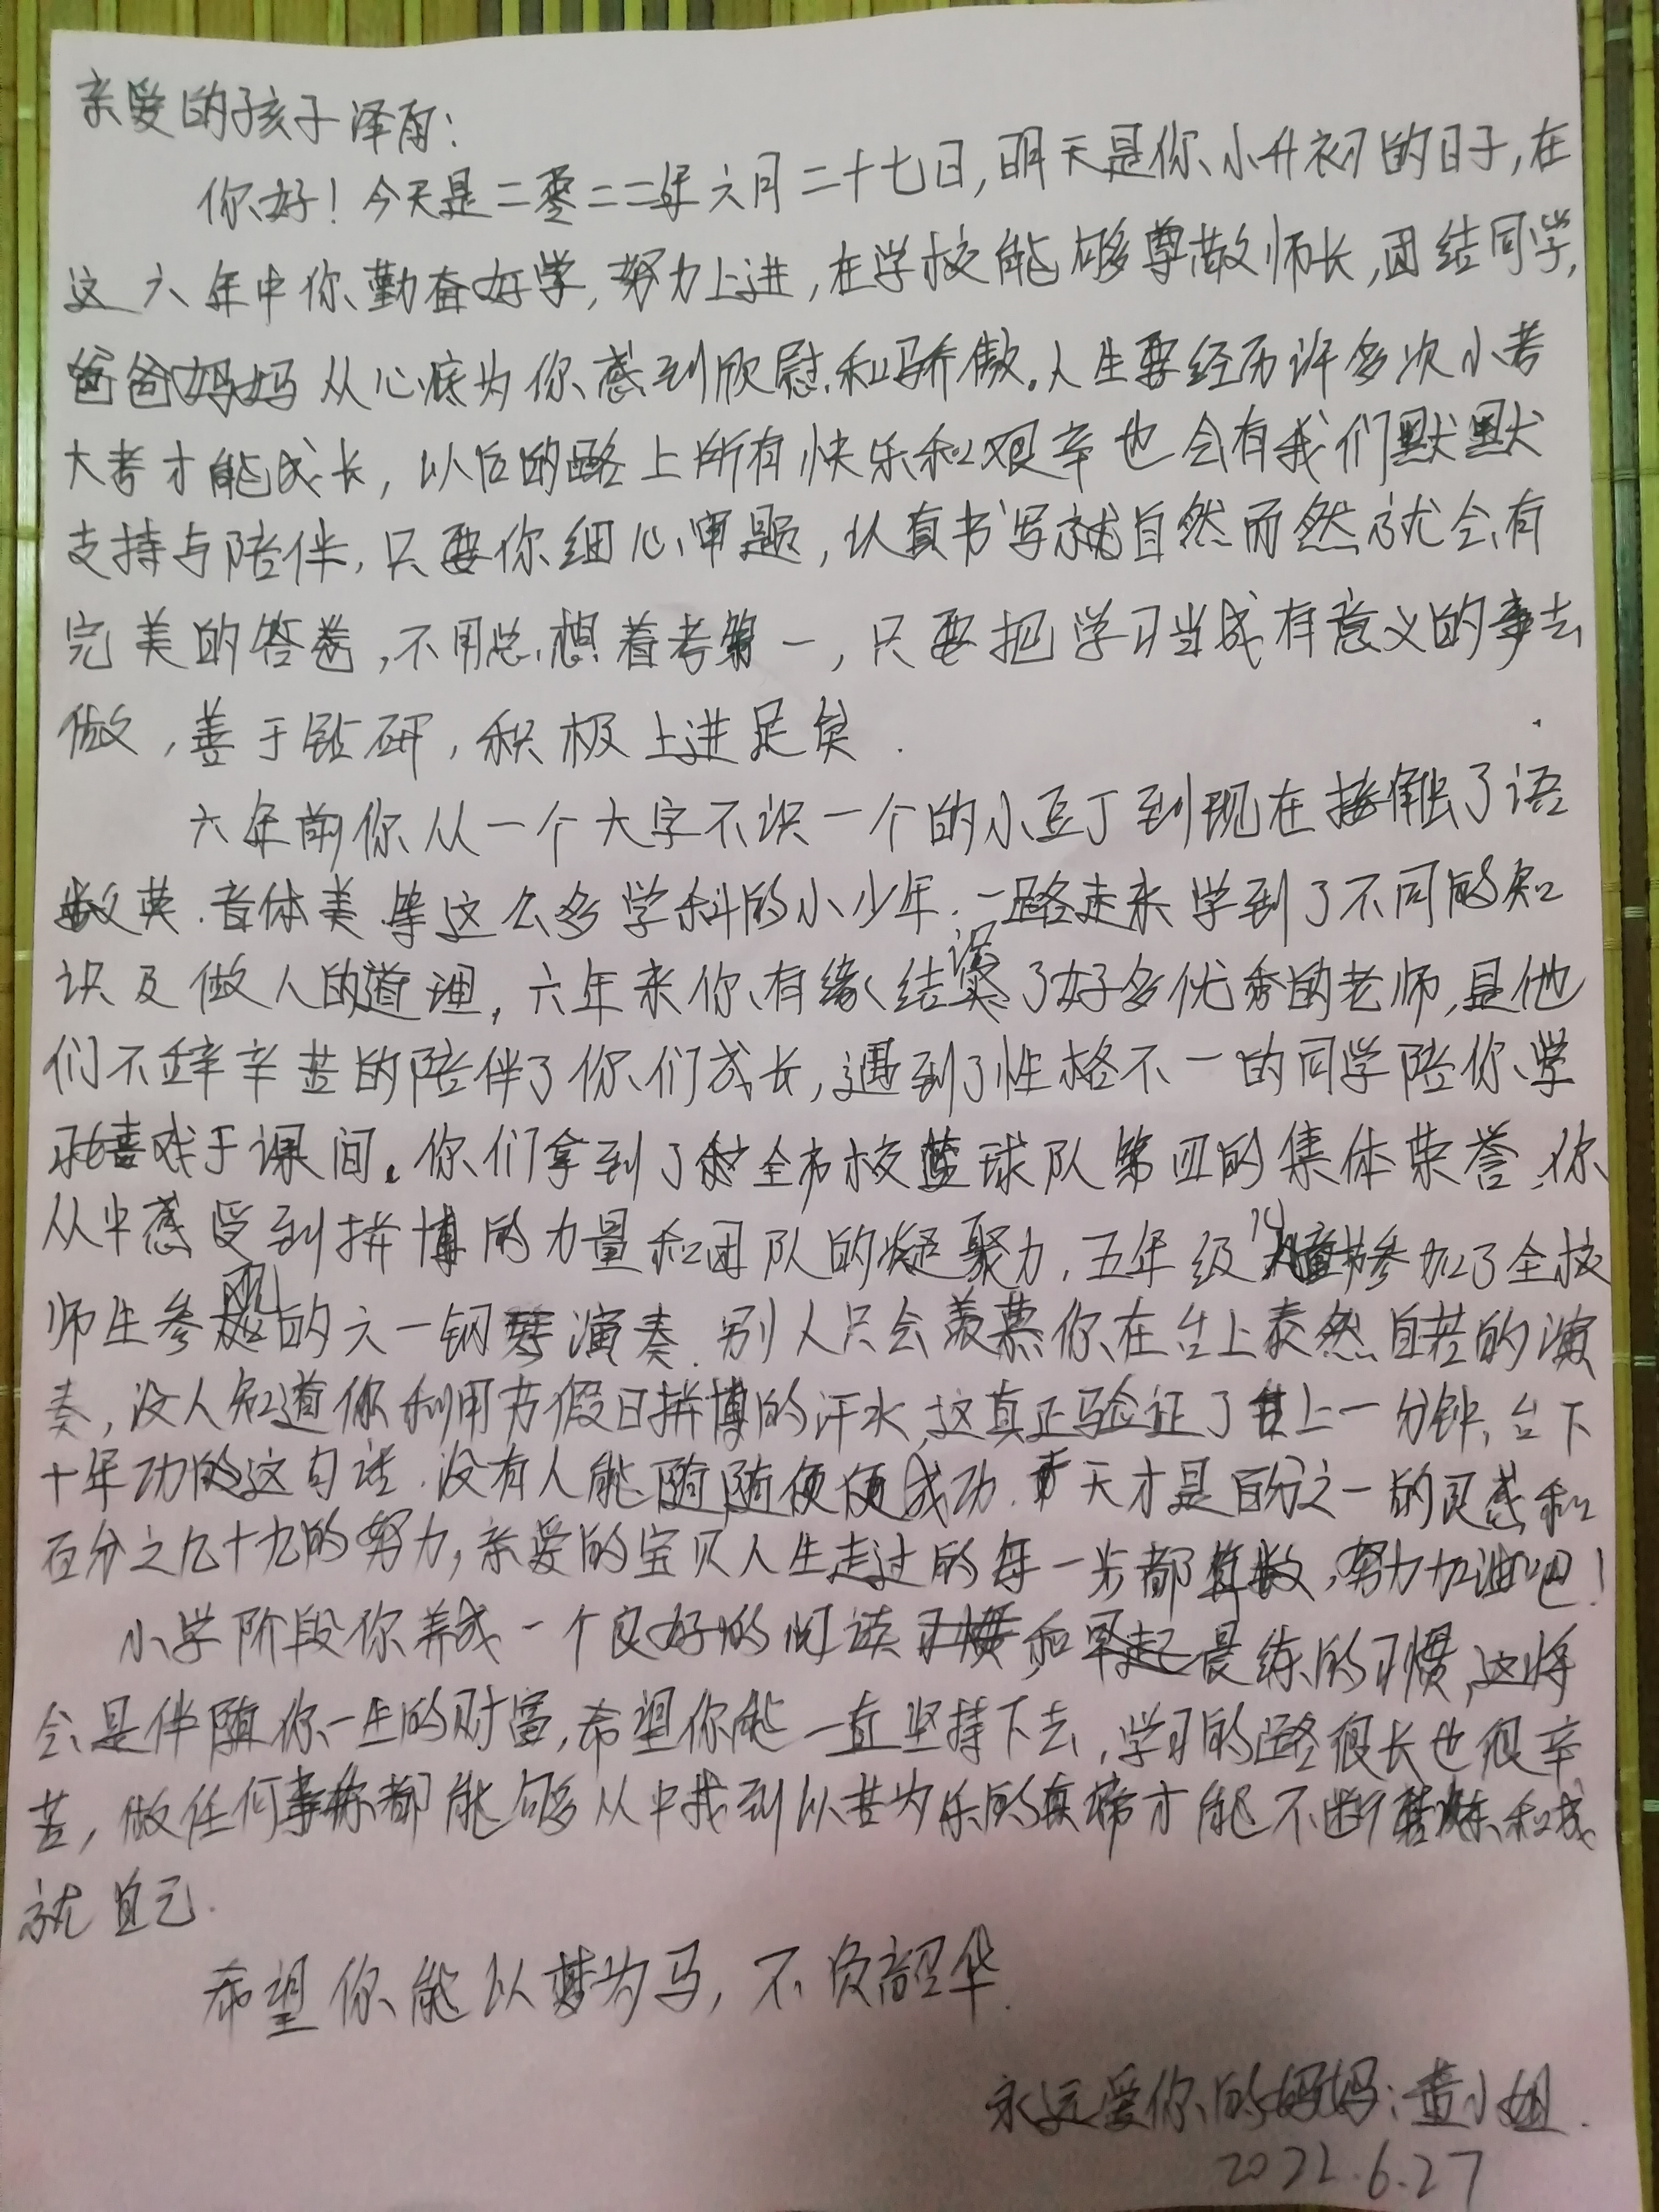 亲爱的孩子泽雨：
你好！今天是二零二二年六月二十七日，明天是你小升初的日子，在
这六年中你勤奋好学，努力上进，在学校能够尊敬师长，团结同学，
爸爸妈妈从心底为你感到欣慰和骄傲。人生要经历许多次小考
大考才能成长，以后的路上所有快乐和艰辛也会有我们默默
支持与陪伴，只要你细心审题，认真书写就自然而然就会有
完美的答卷，不用总想着考第一，只要把学习当成有意义的事去
做，善于钻研，积极上进足矣.
六年前你从一个大字不识一个的小豆丁到现在接触了语
数英.音体美等这么多学科的小少年.一路走来学到了不同的知
识及做人的道理，六年来你有缘结识了好多优秀的老师，是他
们不辞辛苦的陪伴了你们成长，遇到了性格不一的同学陪你学
习嬉戏于课间。你们拿到了全市校篮球队第四的集体荣誉，你
从中感受到拼博的力量和团队的凝聚力，五年级你参加了全校
师生参观的六一钢琴演奏.别人只会羡慕你在台上泰然自若的演
奏，没人知道你利用节假日拼博的汗水，这真正验证了台上一分钟，台下
十年功的这句话.没有人能随随便便成功.天才是百分之一的灵感和
百分之九十九的努力，亲爱的宝贝人生走过的每一步都算数，努力加油吧！
小学阶段你养成一个良好的阅读习惯和早起晨练的习惯，这将
会是伴随你一生的财富，希望你能一直坚持下去，学习的路很长也很辛
苦，做任何事你都能够从中找到以苦为乐的真谛才能不断磨炼和成
就自己.
希望你能以梦为马，不负韶华.
永远爱你的妈妈：董小姐.
2022.6.27